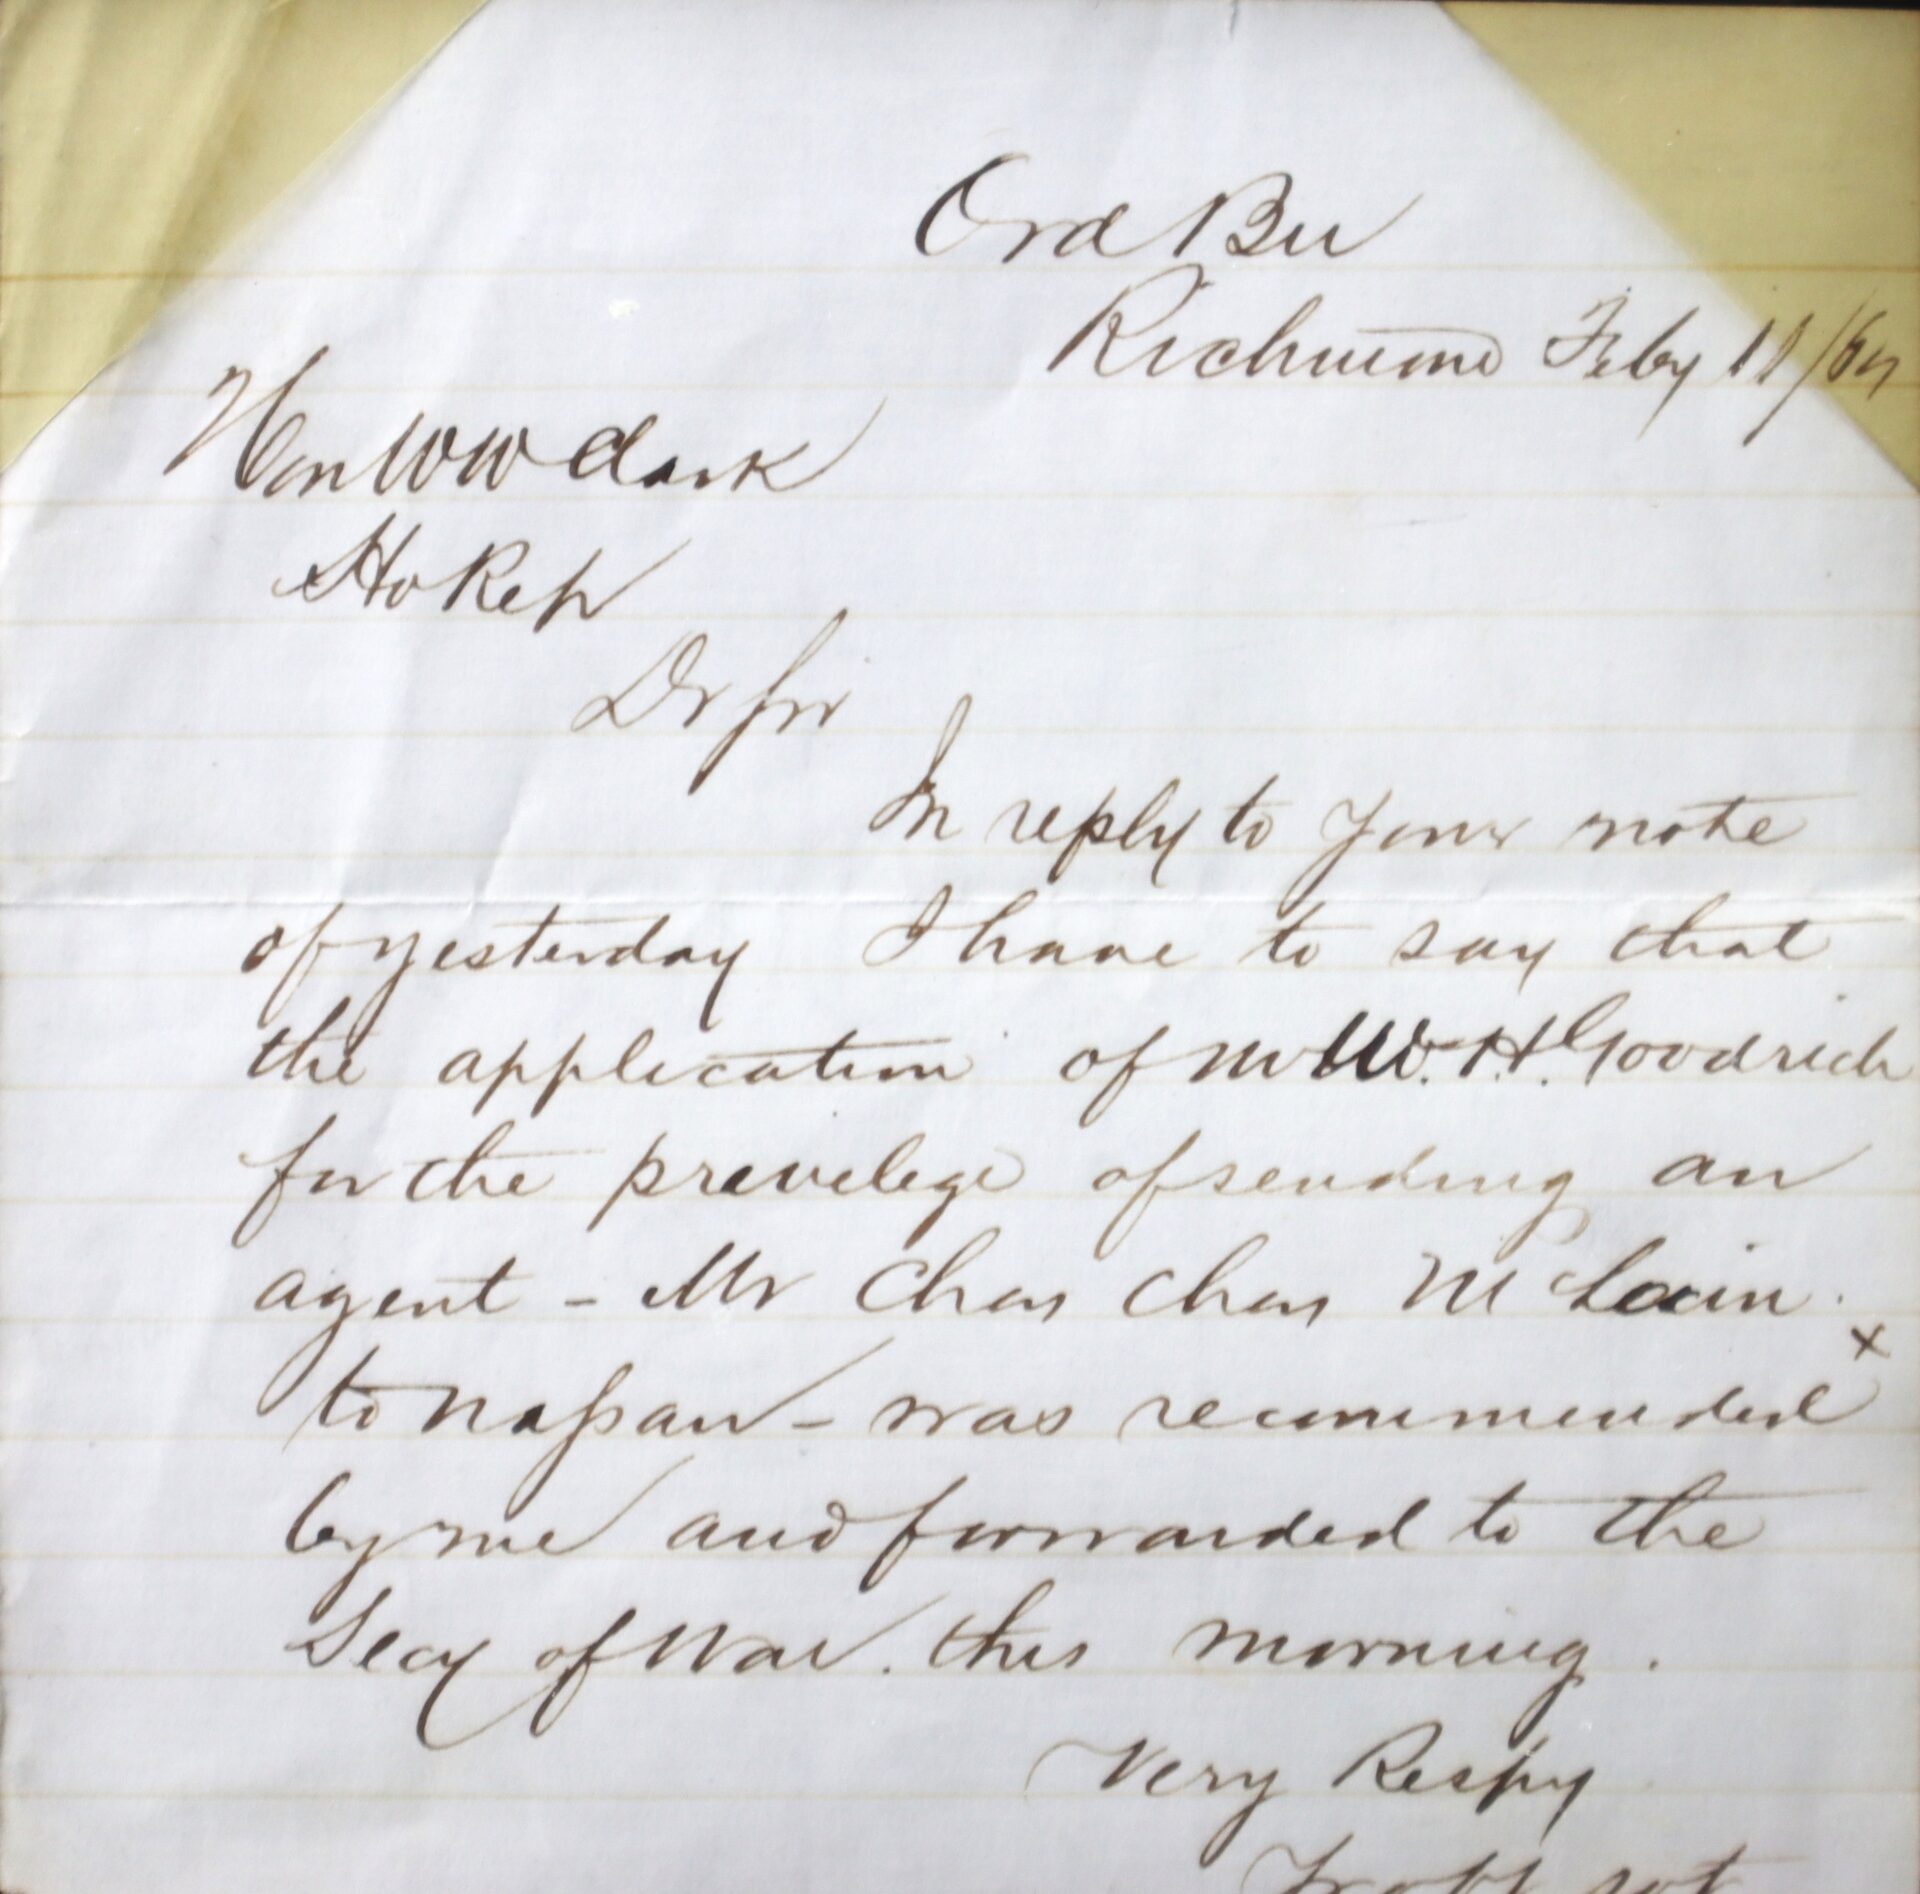 Ord Bu
Richmond Feby 11/64
Hon W W Clark
Ho Rep
Dr Sir
In reply to your note
of yesterday I have to say that
the application of Mr W. H. Goodrich
for the pravelege of sending an
agent - Mr Chas Chas McLain
x
to Nassau - was recommended
by me and forwarded to the
Secy of War. this morning.
Very Respy
Yr obt svt